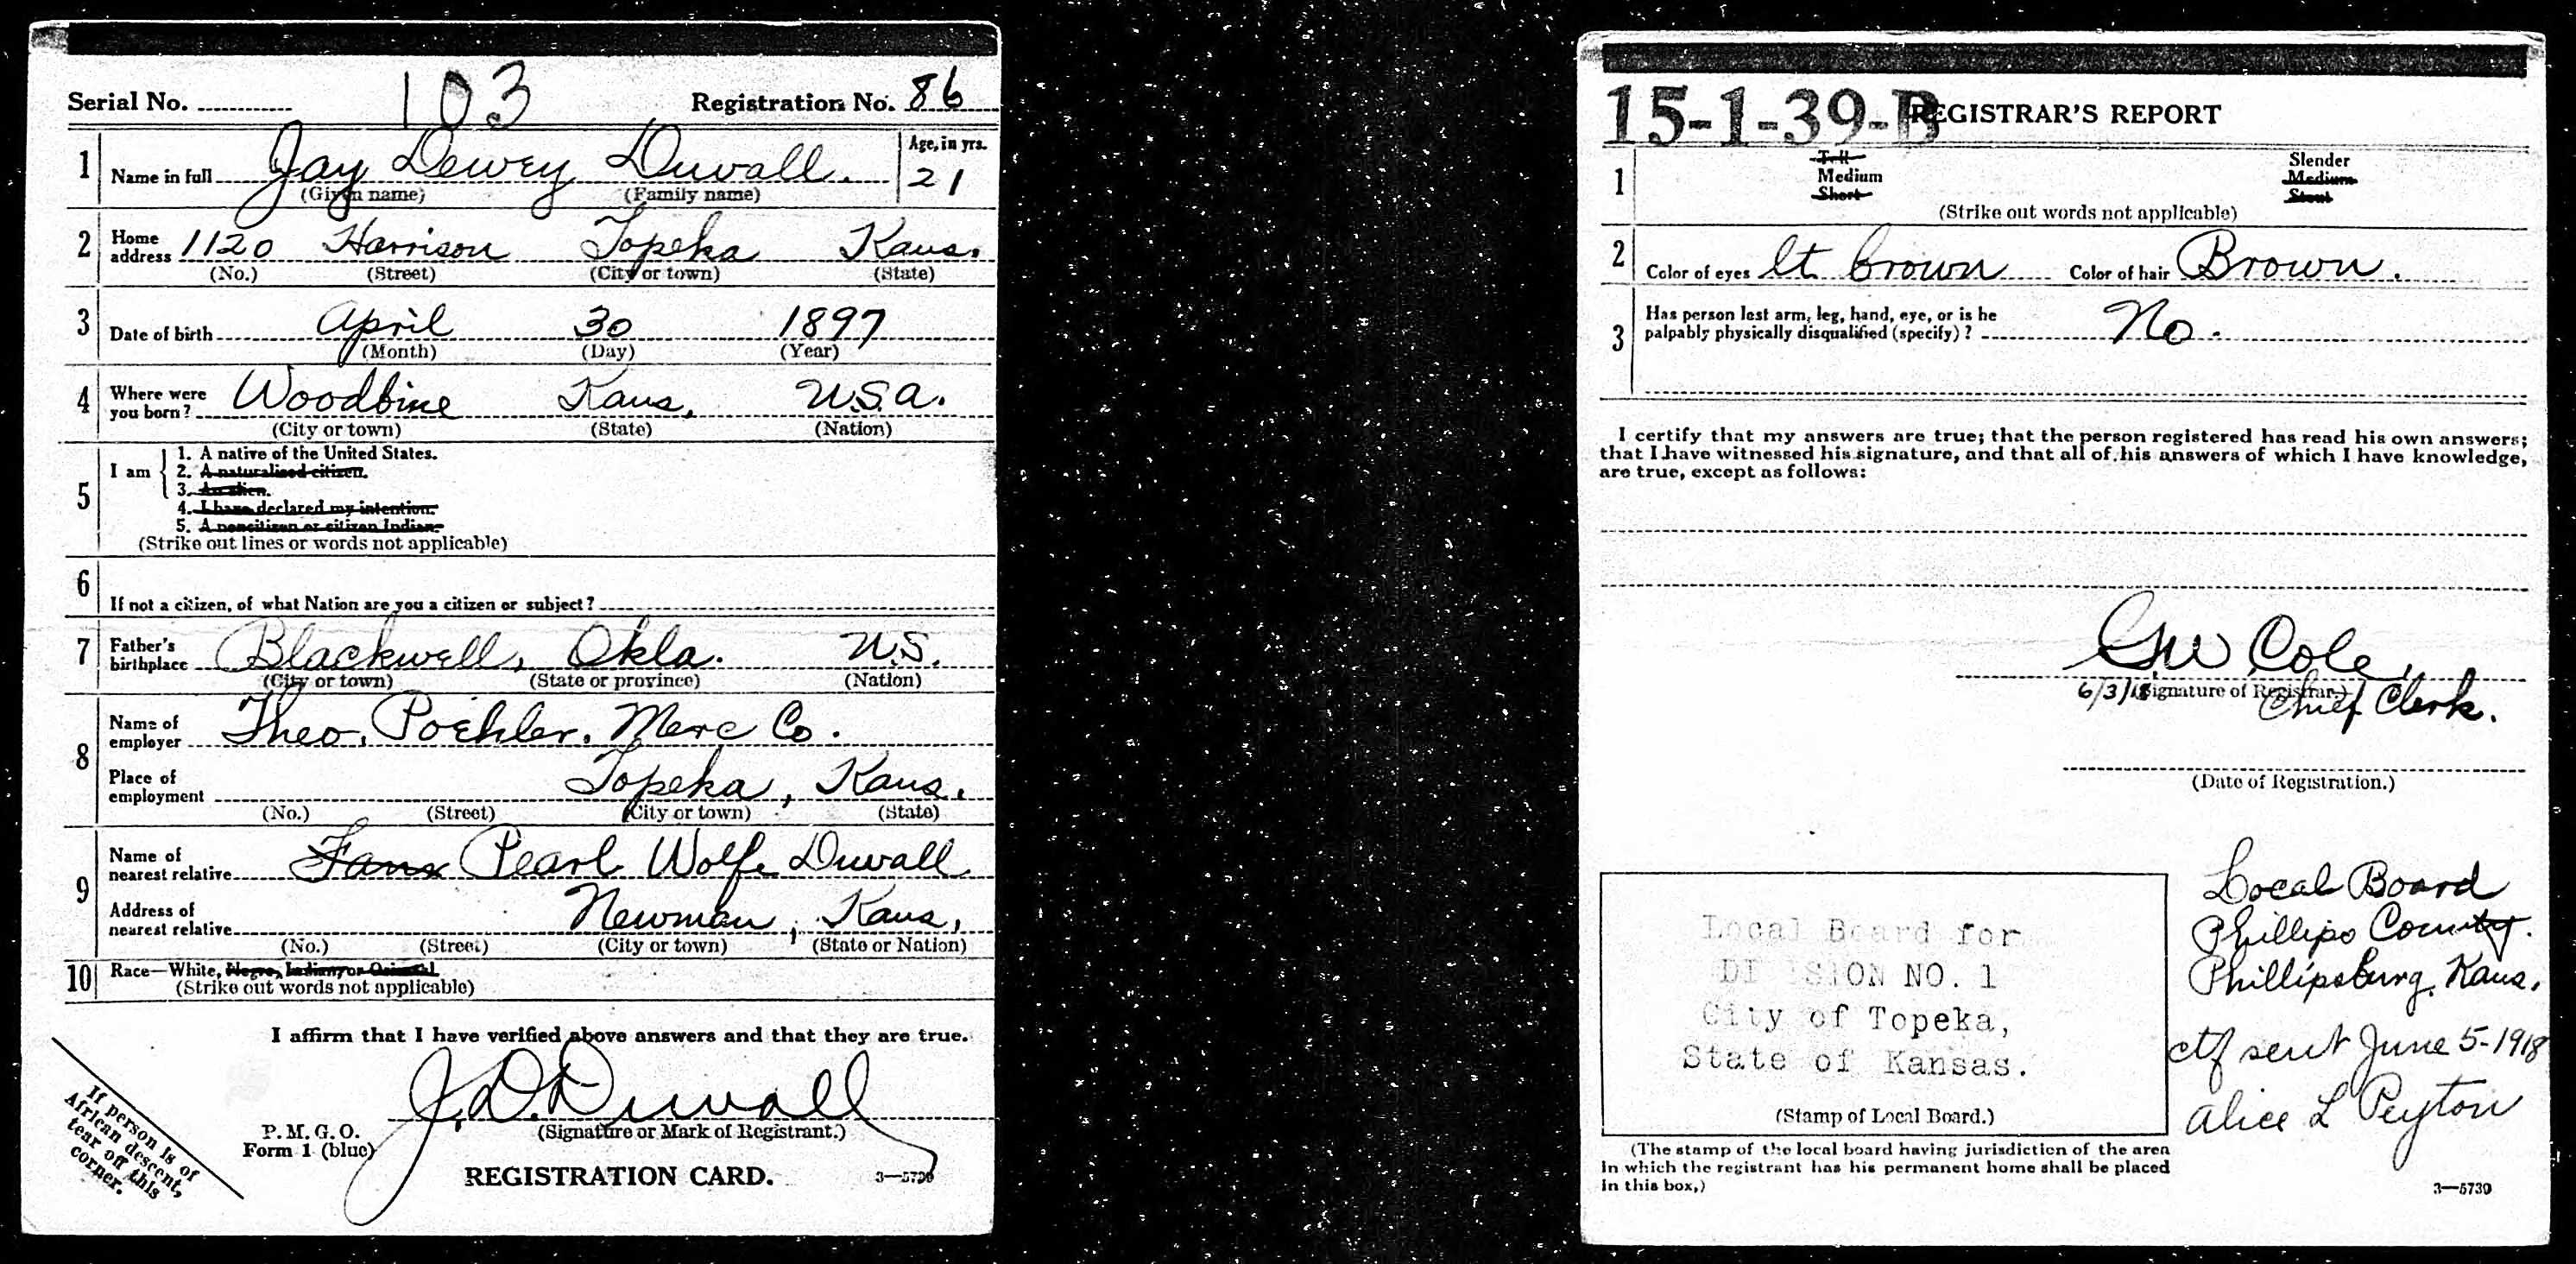 Serial No. 103 Registration No. 86
1 Name in full Jay Dewey Duvall. Age, in yrs. 21
(Given name) (Family name)
2 Home address 1120 Harrison Topeka Kans.
(No.) (Street) (City or town) (State)
3 Date of birth April 30 1897
(Month) (Day) (Year)
4 Where were you born? Woodbine Kans. U.S.A.
(City or town) (State) (Nation)
5 I am
1. A native of the United States.
2. A naturalized citizen.
3. An alien.
4. I have declared my intention.
5. A noncitizen or citizen Indian.
(Strike out lines or words not applicable)
6 If not a citizen, of what Nation are you a citizen or subject?
7 Father's birthplace Blackwell, Okla. U.S.
(City or town) (State or province) (Nation)
8 Name of employer Theo. Poehler. Merc Co.
Place of employment Topeka, Kans.
(No.) (Street) (City or town) (State)
9 Name of nearest relative Pearl Wolfe Duvall
Address of nearest relative Newman, Kans,
(No.) (Street) (City or town) (State or Nation)
10 Race—White, Negro, Indian, or Oriental
(Strike out words not applicable)
I affirm that I have verified above answers and that they are true.
J. D. Duvall
(Signature or Mark of Registrant.)
P. M. G. O.
Form 1 (blue)
REGISTRATION CARD. 3—5739
If person is of
African descent,
tear off this
corner.
15-1-39-B REGISTRAR'S REPORT
1 Tall Slender
Medium Medium
Short Stout
(Strike out words not applicable)
2 Color of eyes lt brown Color of hair Brown.
3 Has person lost arm, leg, hand, eye, or is he
palpably physically disqualified (specify)? No.
I certify that my answers are true; that the person registered has read his own answers;
that I have witnessed his signature, and that all of his answers of which I have knowledge,
are true, except as follows:
GW Cole,
6/3/18 (Signature of Registrar.) Chief Clerk.
(Date of Registration.)
Local Board
Phillips County.
Phillipsburg, Kans.
ctf sent June 5-1918
Alice L Peyton
Local Board for
DIVISION NO. 1
City of Topeka,
State of Kansas.
(Stamp of Local Board.)
(The stamp of the local board having jurisdiction of the area
in which the registrant has his permanent home shall be placed
in this box.)
3—5739